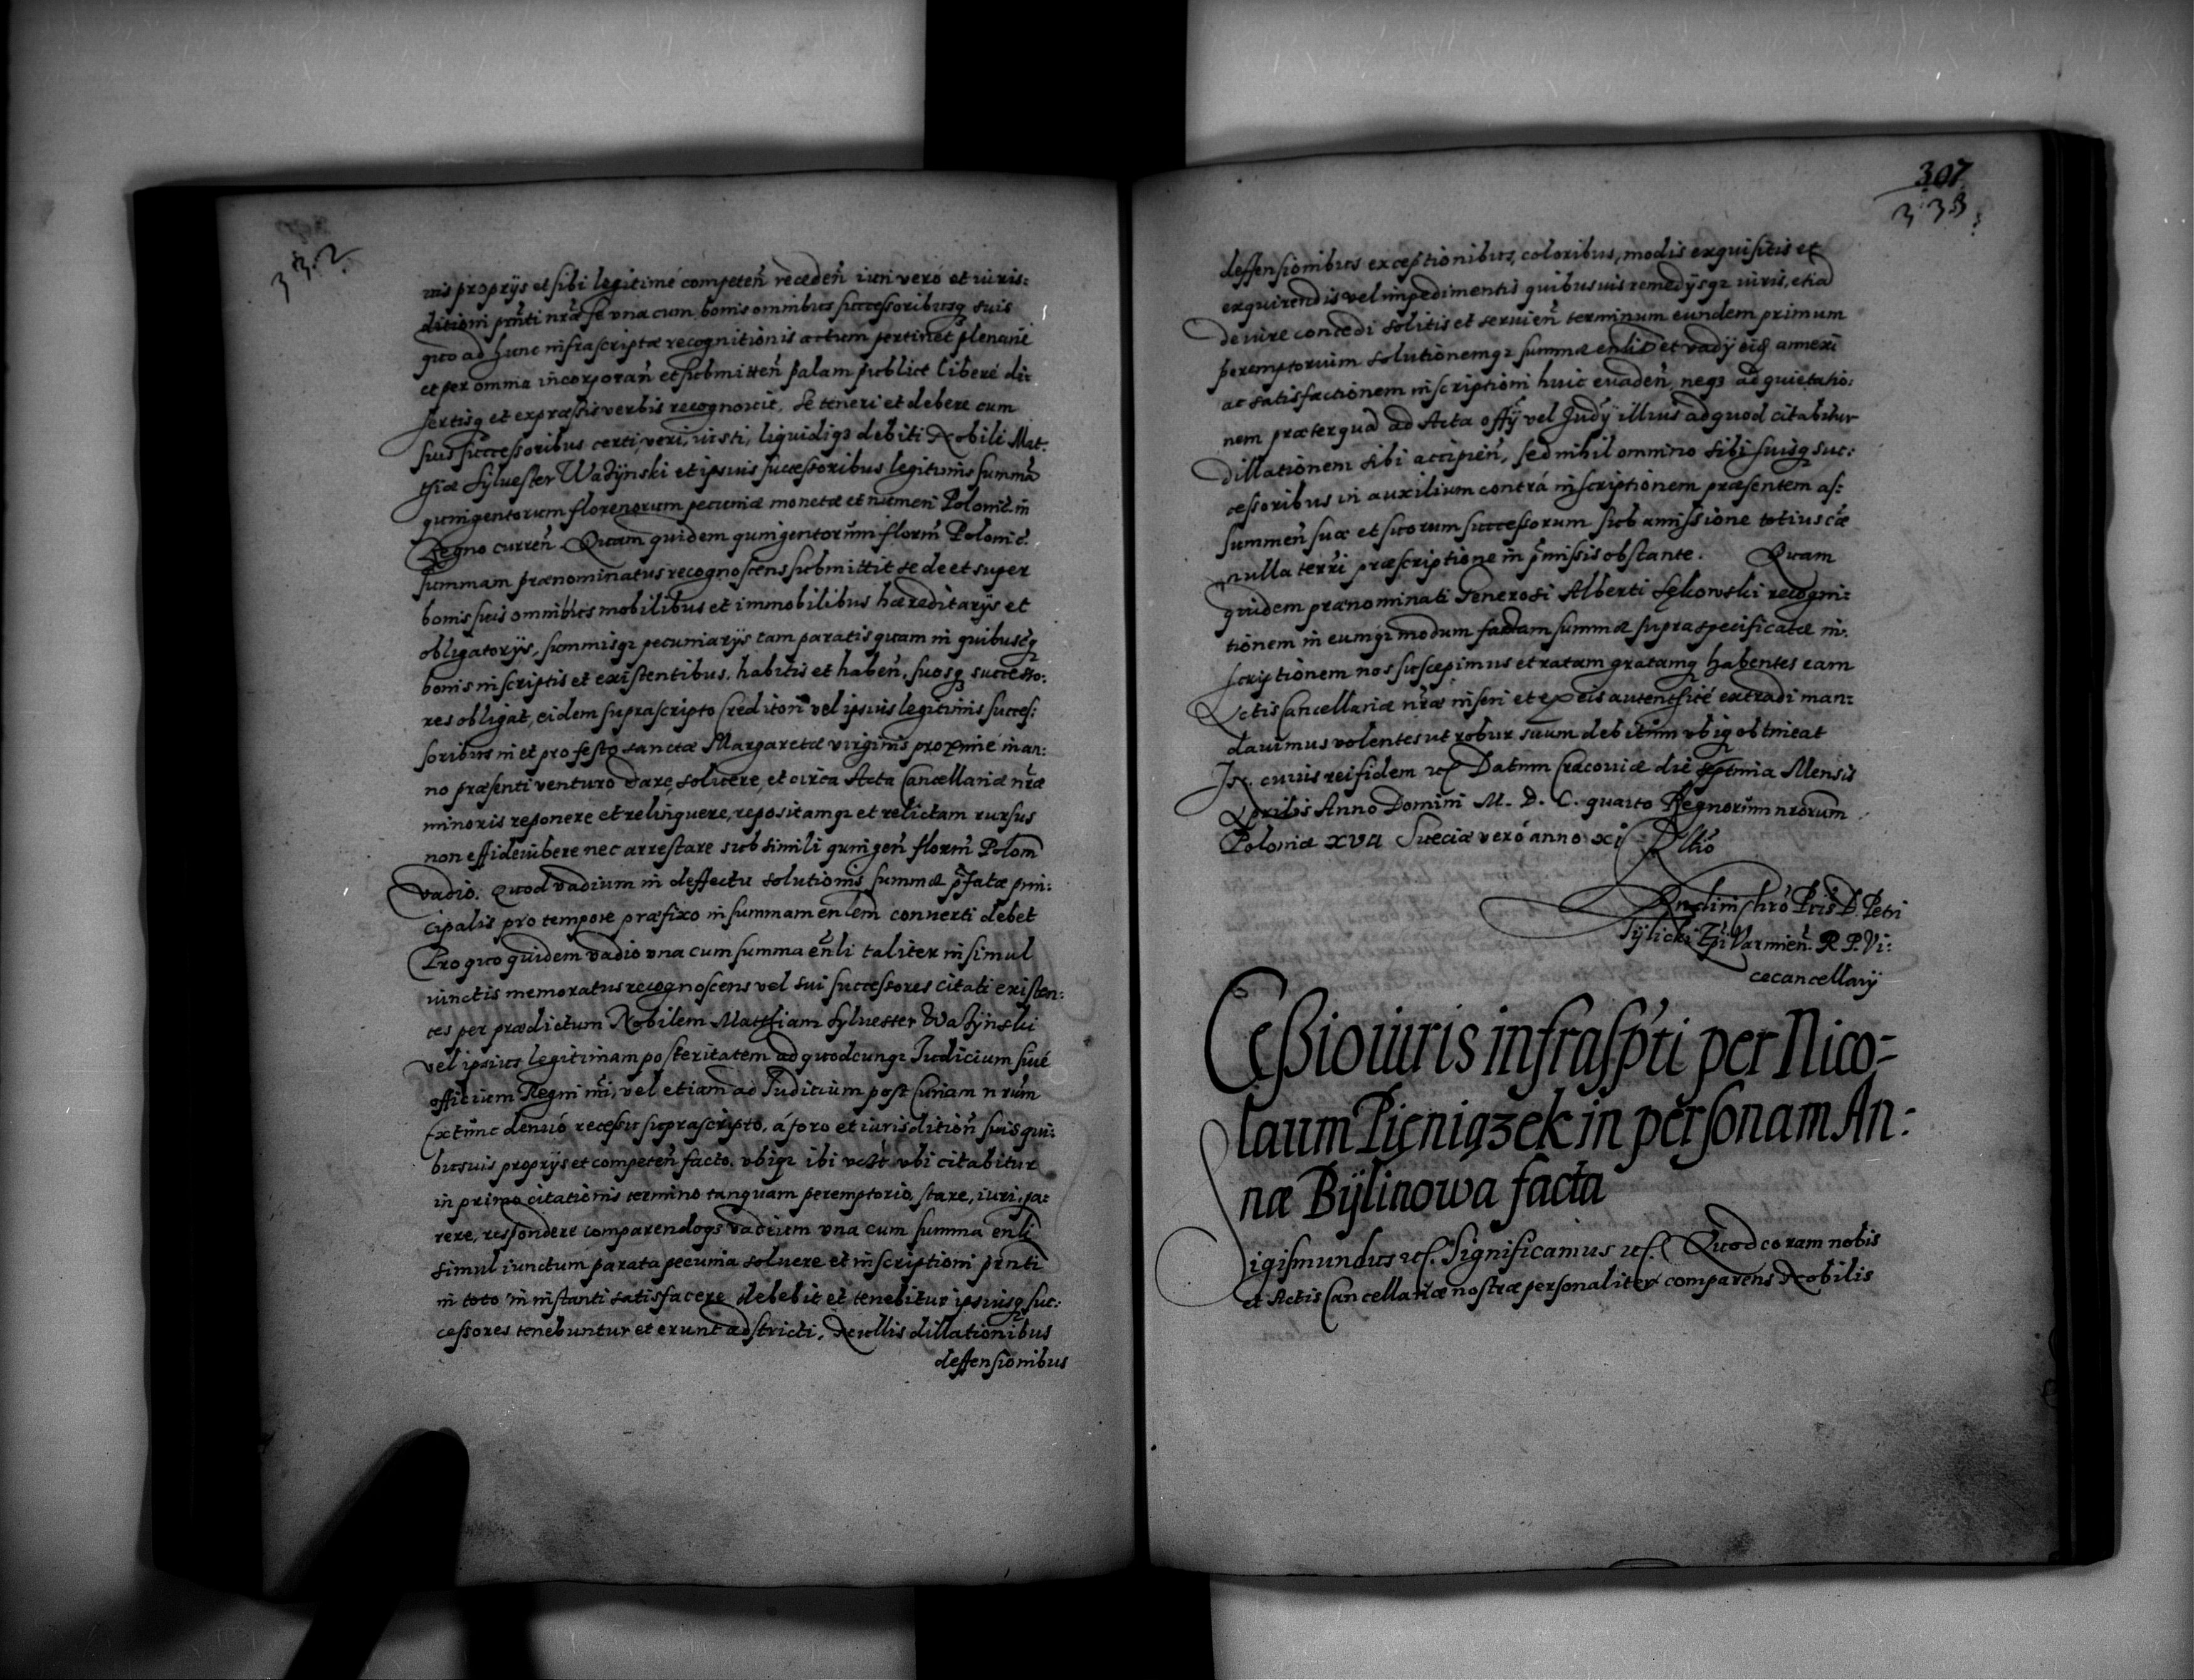 332
uis proprys et sibi legitimé competeñ recedeñ iuri veró et iuris:
ditioni pñti nræ se vna cum bonis omnibus successoribusq suis
quo ad hunc infrascriptæ recognitionis actum pertinet plenarie
et per omnia incorporañ et submitteñ palam publicé liberé di:
sertisq et expressis verbis recognoscit, se teneri et debere cum
suis successoribus certi, veri, iusti, liquidiq3 debiti Nobili Mat:
thiæ Sylvester Ważynski et ipsius successoribus legitimis summã
quingentorum florenorum pecuniæ monetæ et numeri Polonic̃ in
Regno curreñ. Quam quidem quingentorum florm̃ Polonic̃.
summam prænominatus recognoscens submittit se de et super
bonis suis omnibus mobilibus et immobilibus hæreditarys et
obligatorys, summisq3 pecuniarys tam paratis quam in quibusq
bonis inscriptis et existentibus, habitis et habeñ, suosq successo:
res obligat, eidem suprascripto Creditori vel ipsius legitimis succes:
soribus in et pro festo sanctæ Margaretæ virginis proximé in an:
no præsenti venturo dare, soluere, et circa Acta Cancellariæ nræ
minoris reponere et relinquere, repositamq3 et relictam rursus
non effideiubere nec arrestare sub simili quingeñ florm̃ Polom̃
vadio. Quod vadium in deffectu solutionis summæ p̃fatæ prin:
cipalis pro tempore præfixo in summam eñlem conuerti debet
Pro quo quidem vadio vna cum summa eñli taliter insimul
iunctis memoratus recognoscens vel sui successores citati existen:
tes per prædictum Nobilem Matthiam Sylvester Ważynski
vel ipsius legitimam posteritatem ad quodcunq3 Iudicium siué
officium Regni nri, vel etiam ad Iuditium post Curiam nrũm
Extunc denuó recessu suprascripto, á foro et iurisditioñ suis qui:
busuis proprys et competeñ facto. vbiq3 ibi velut vbi citabitur
in primo citationis termino tanquam peremptorio, stare, iuri pa:
rere, respondere comparendoq3 vadium vna cum summa eñli
simul iunctum parata pecunia soluere et inscriptioni prñti
in toto in instanti satisfacere debebit et tenebitur ipsiusq suc:
cessores tenebuntur et erunt adstricti, Nullis dillationibus
deffensionibus
307
333
deffensionibus exceptionibus, coloribus, modis exquisitis et
exquirendis vel impedimentis quibusuis remedysq3 iuris, etiã
de iure concedi solitis et servieñ terminum eundem primum
peremptorium solutionemq3 summæ eñlis et vady eiq annexi
ac satisfactionem inscriptioni huic euadeñ, neq3 ad quietatio:
nem præterquã ad Acta offy vel Judy illius ad quod citabitur
dillationem sibi accipieñ, sed nihil omnino sibi suisq suc:
cessoribus in auxilium contrá inscriptionem præsentem as:
summeñ suæ et suorum successorum sub amissione totius cæ
nulla terri præscriptione in p̃missis obstante. Quam
quidem prænominati Generosi Alberti Sękowski recogni:
tionem in eumq3 modum factam summæ supraspecificatæ in:
scriptionem nos suscepimus et ratam gratamq habentes eam
Actis Cancellariæ nræ inseri et ex eis autenthicé extradi man:
dauimus volentes ut robur suum debitum vbiq obtineat
In cuius rei fidem etc Datum Cracouiæ die septima Mensis
Aprilis Anno Domini M. D. C. quarto Regnorum nrorum
Poloniæ XVII Sueciæ veró anno xi
Petri
Tylicki Epi Varmieñ. R. P. Vi:
cecancellary
Cessio iuris infrasp̃ti per Nico=
laum Pieniązek in personam An:
næ Bÿlinowa facta
Sigismundus etc. Significamus etc. Quod coram nobis
et Actis Cancellariæ nostræ personaliter comparens Nobilis